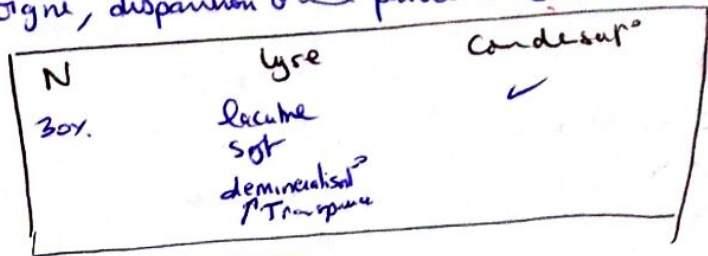 disparition
N lyse Condesat°
30%. lacune ✓
sqt
demineralisat°
↑ Transparence